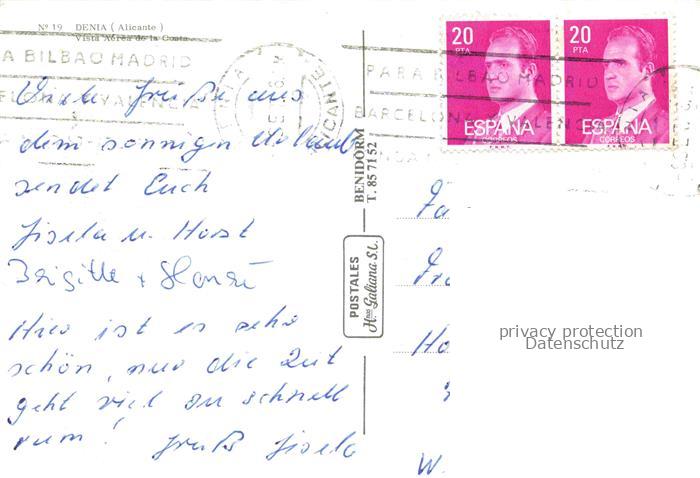 Nº 19 DENIA (Alicante)
Vista Aérea de la Costa
A BILBAO MADRID
PARA BILBAO MADRID
BARCELONA VALENC
20
PTA
ESPAÑA
CORREOS
20
PTA
ESPAÑA
CORREOS
Grüße aus
dem sonnigen Urlaub
sendet Euch
Gisela u. Horst
Brigitte +
Hier ist es sehr
schön, nur die Zeit
geht viel zu schnell
rum!
Gruß Gisela
BENIDORM
T. 85 71 52
POSTALES
Hnos Galiana S.L.
Fa
Fr
Ho
W.
privacy protection
Datenschutz